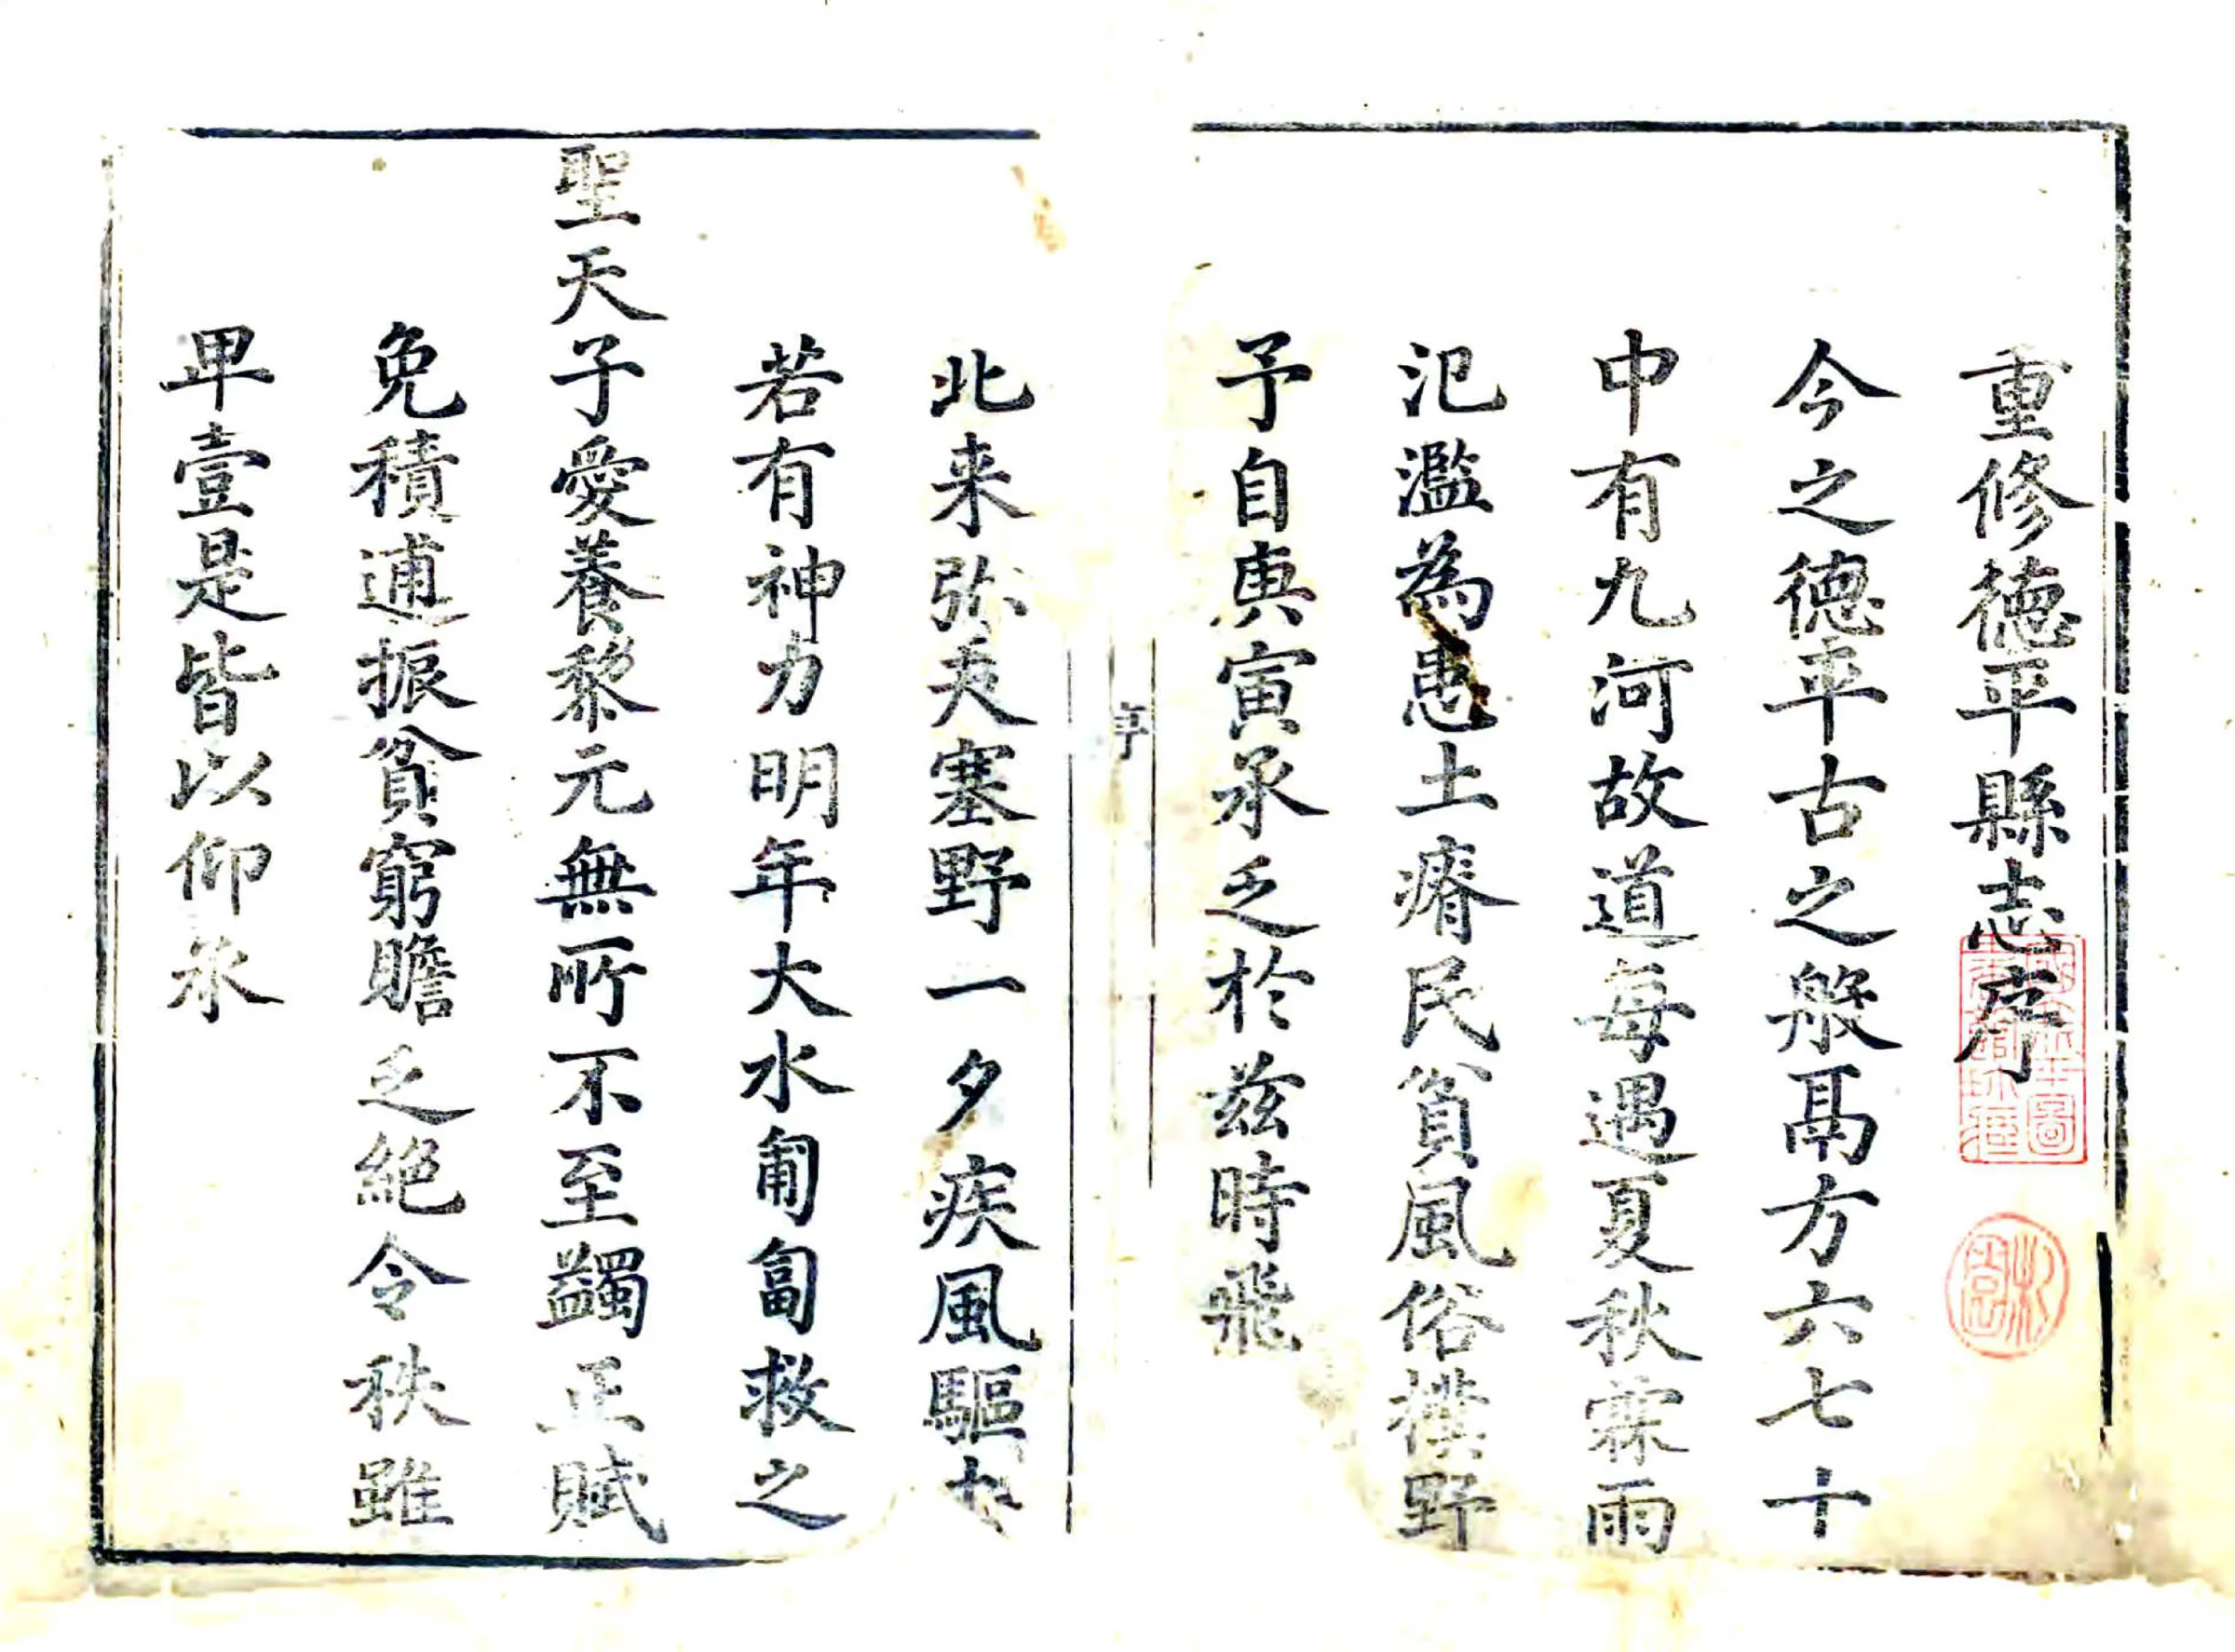 重修徳平縣志序
今之徳平古之般鬲方六七十
中有九河故道每遇夏秋霖雨
氾濫為患土瘠民貧風俗樸野
予自庚寅承乏於兹時飛
序
北来弥天塞野一夕疾風驅
若有神力明年大水匍匐救之
聖天子愛養黎元無所不至蠲正賦
免積逋振貧窮贍乏絕令秩雖
卑壹是皆以仰承